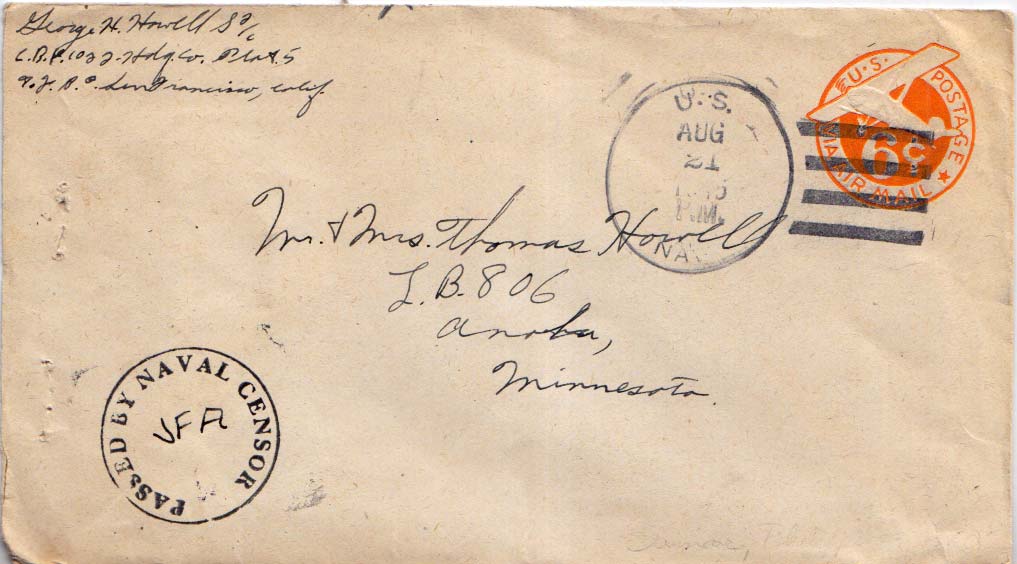 George H. Howell S 2/c
C.B.P. 1032-Hdq. Co. Plat. 5
San Francisco, Calif.
U.S. POSTAGE
6¢
VIA AIR MAIL
U.S.
AUG
21
P.M.
Mr. & Mrs. Thomas Howell
L.B. 806
Anoka,
Minnesota.
PASSED BY NAVAL CENSOR
JFA